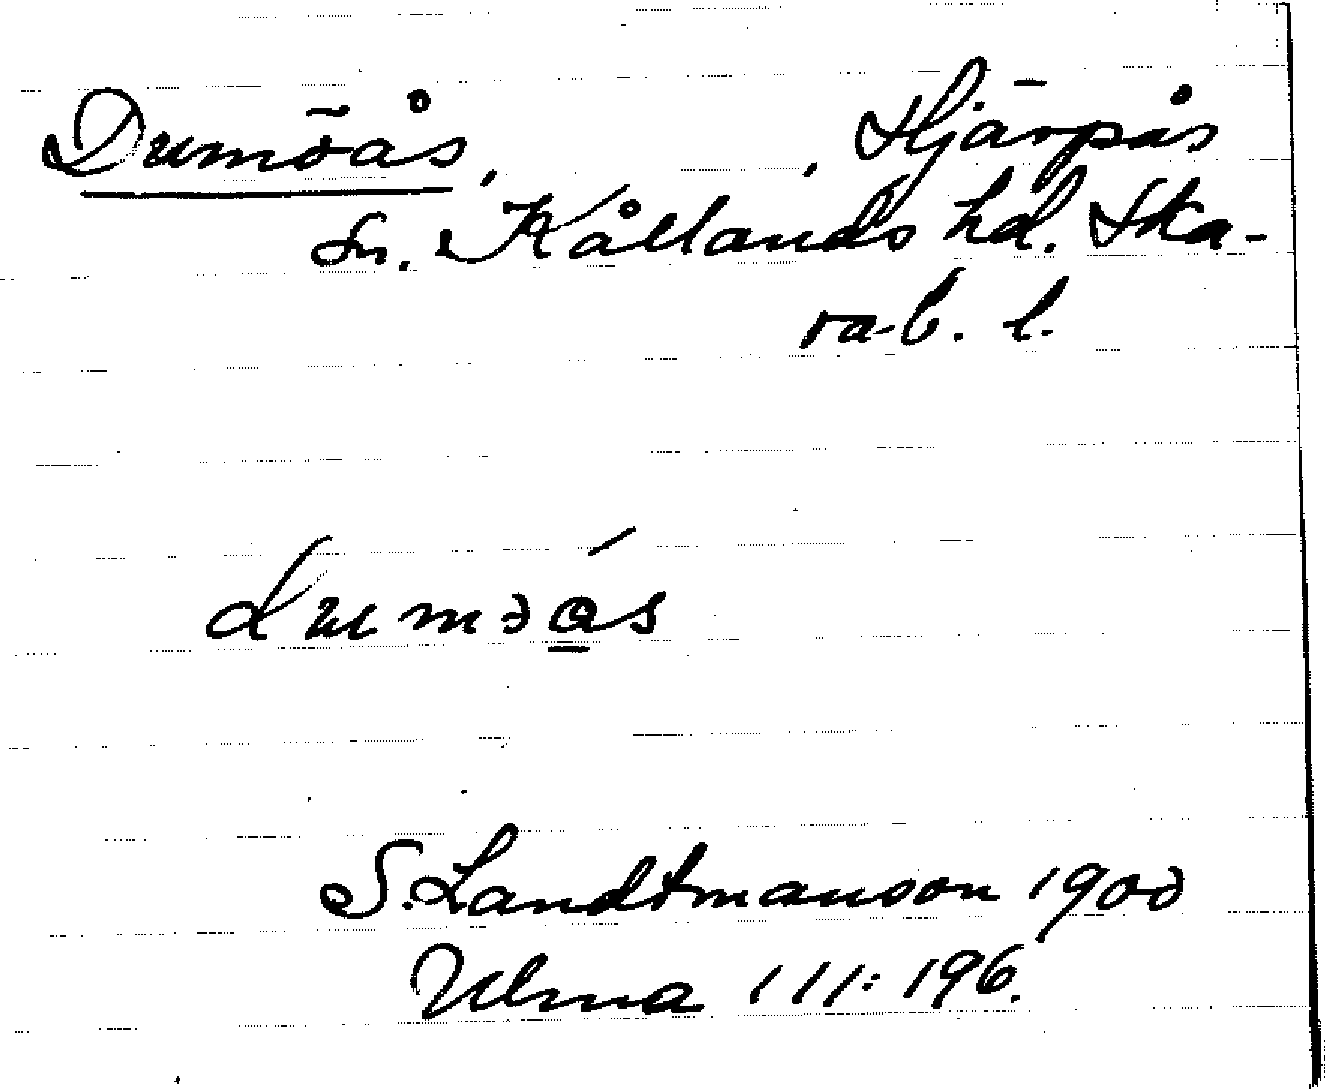 Dumöås, , Hjärpås
sn. Kållands hd. Ska-
ra-b. l.
duməås
S. Landtmanson 1900
Ulma 111:196.